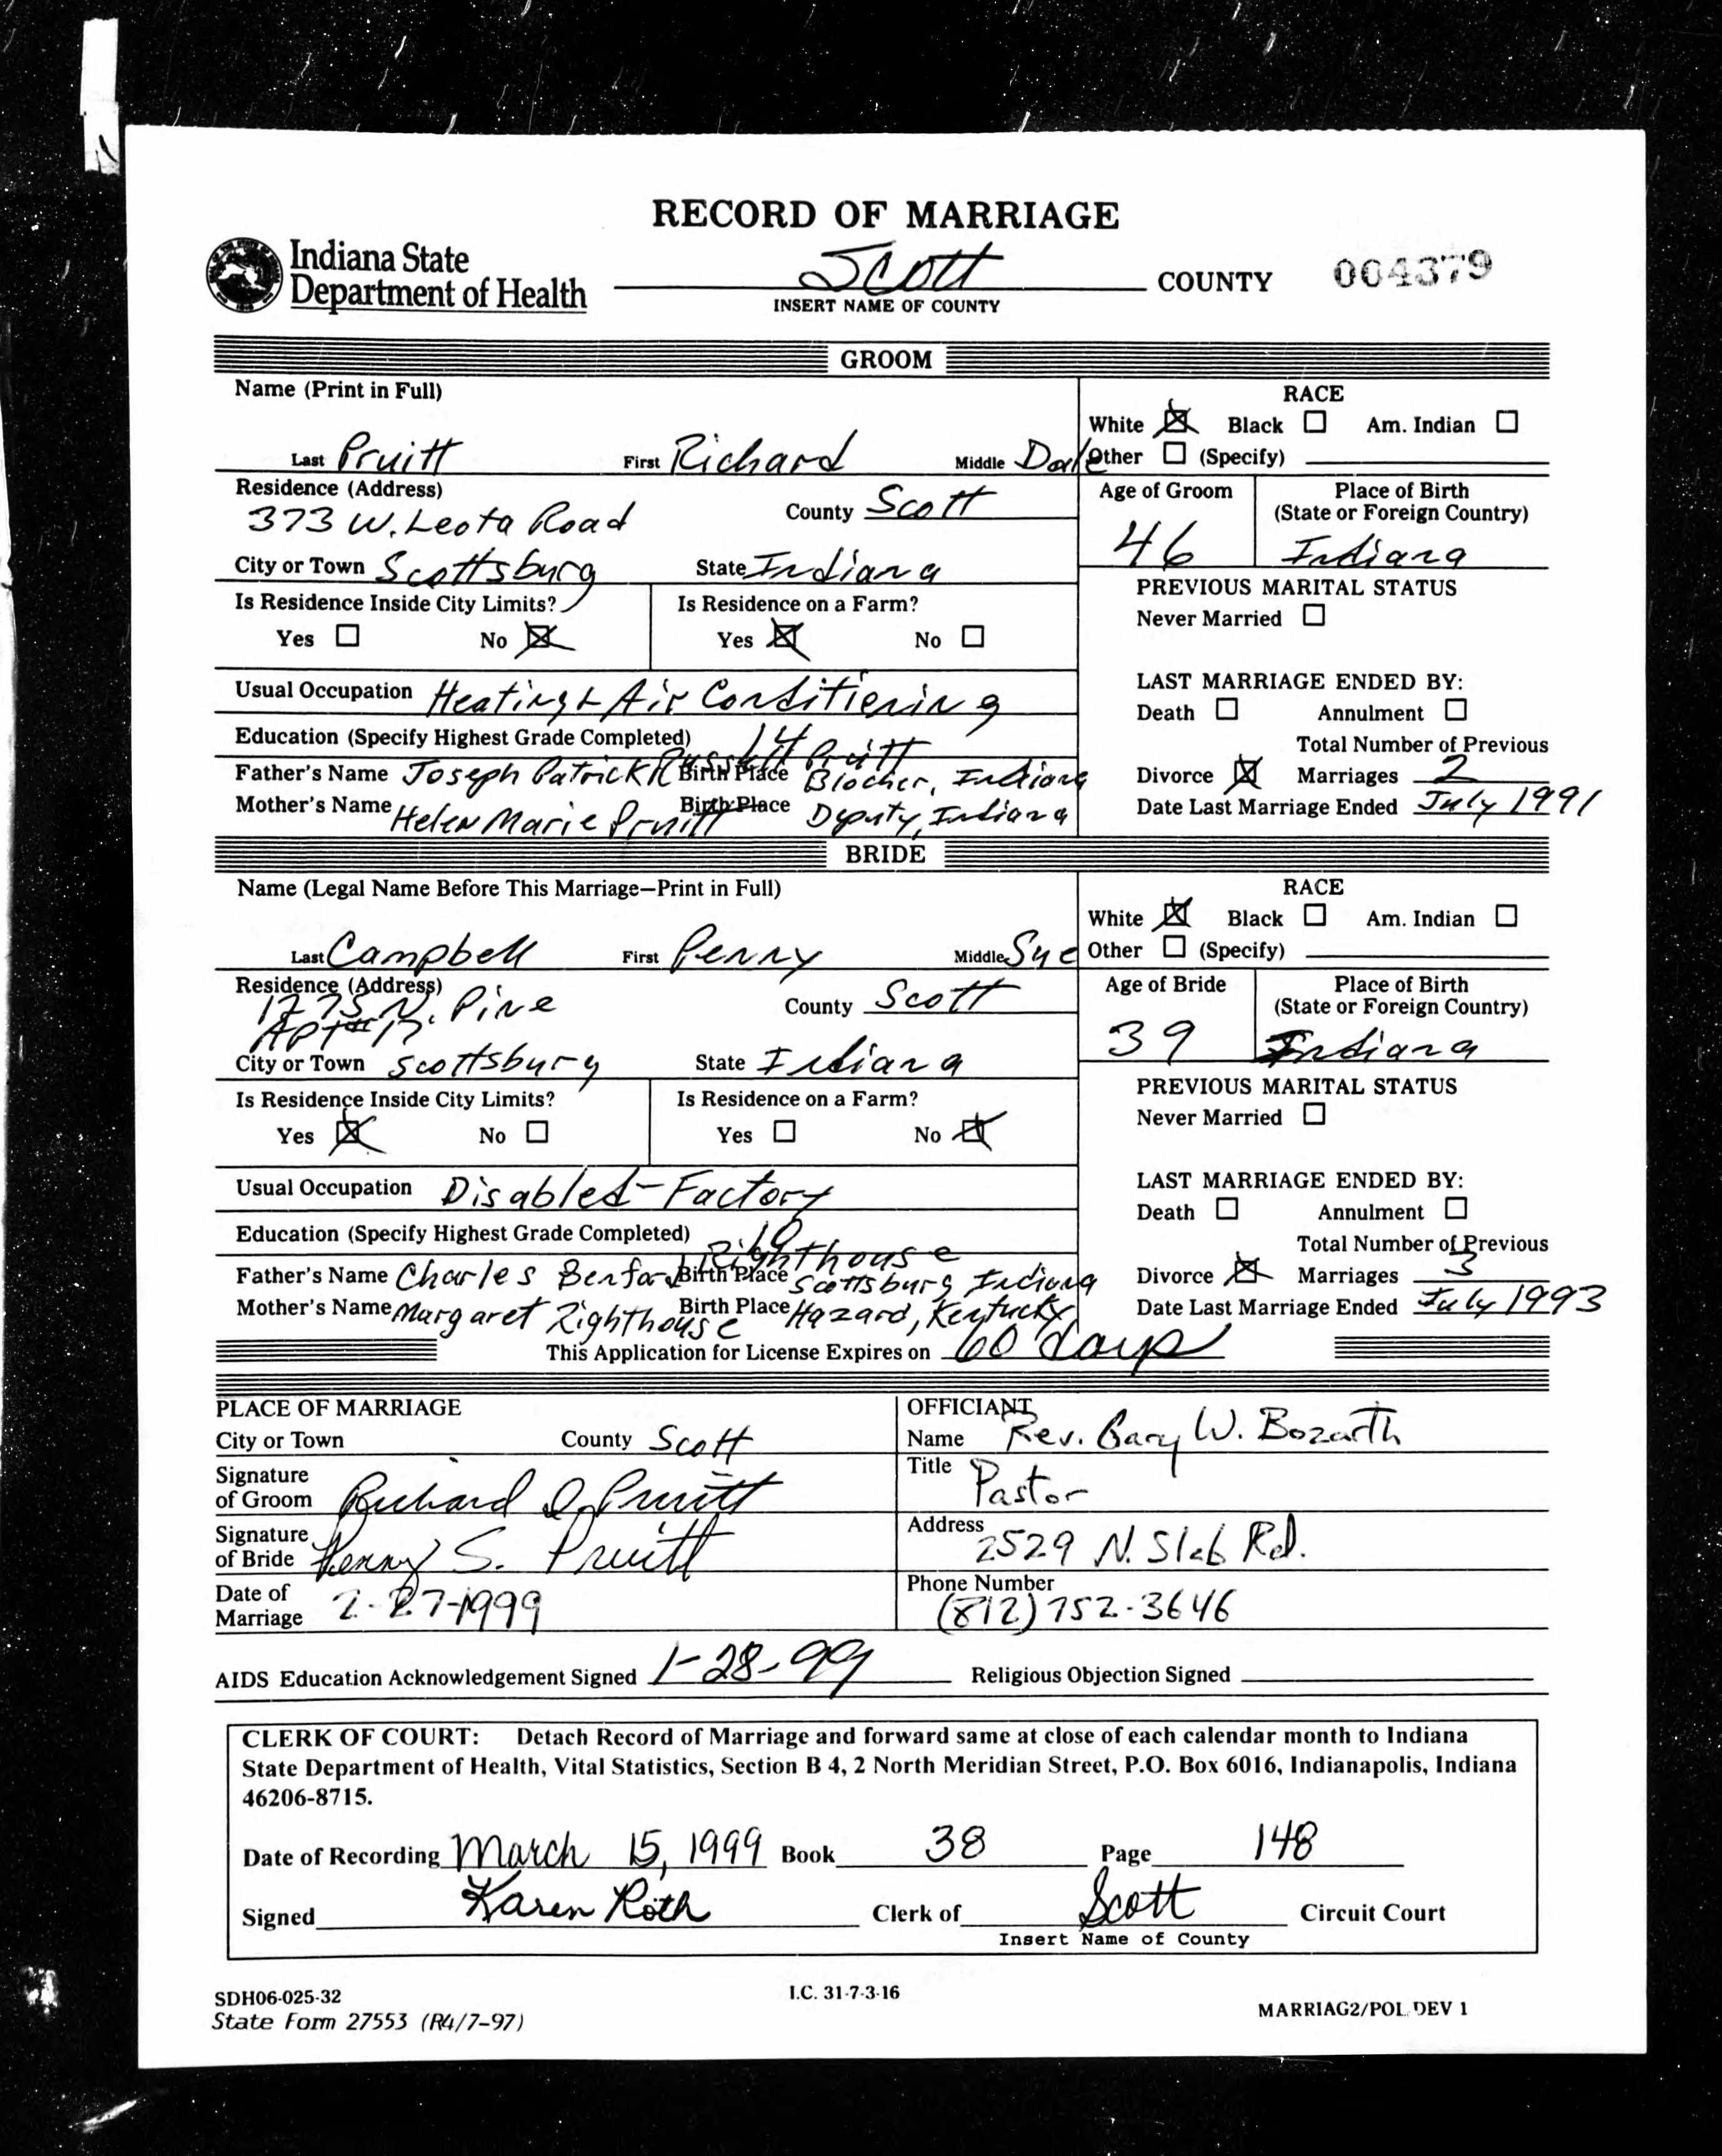 RECORD OF MARRIAGE
Indiana State
Department of Health
Scott COUNTY 004379
INSERT NAME OF COUNTY
GROOM
Name (Print in Full)
Last Pruitt First Richard Middle Dale
RACE
White ☒ Black ☐ Am. Indian ☐
Other ☐ (Specify)
Residence (Address)
373 W. Leota Road
County Scott
City or Town Scottsburg State Indiana
Age of Groom
46
Place of Birth
(State or Foreign Country)
Indiana
Is Residence Inside City Limits?
Yes ☐ No ☒
Is Residence on a Farm?
Yes ☒ No ☐
PREVIOUS MARITAL STATUS
Never Married ☐
Usual Occupation Heating & Air Conditiening
Education (Specify Highest Grade Completed) 14
Father's Name Joseph Patrick Pruitt Birth Place Blocher, Indiana
Mother's Name Helen Marie Pruitt Birth Place Deputy, Indiana
LAST MARRIAGE ENDED BY:
Death ☐ Annulment ☐
Total Number of Previous
Divorce ☒ Marriages 2
Date Last Marriage Ended July 1991
BRIDE
Name (Legal Name Before This Marriage—Print in Full)
Last Campbell First Penny Middle Sue
RACE
White ☒ Black ☐ Am. Indian ☐
Other ☐ (Specify)
Residence (Address)
1775 N. Pine
Apt # 17.
County Scott
City or Town Scottsburg State Indiana
Age of Bride
39
Place of Birth
(State or Foreign Country)
Indiana
Is Residence Inside City Limits?
Yes ☒ No ☐
Is Residence on a Farm?
Yes ☐ No ☒
PREVIOUS MARITAL STATUS
Never Married ☐
Usual Occupation Disabled - Factory
Education (Specify Highest Grade Completed) 10
Father's Name Charles Benford Righthouse Birth Place Scottsburg Indiana
Mother's Name Margaret Righthouse Birth Place Hazard, Kentucky
LAST MARRIAGE ENDED BY:
Death ☐ Annulment ☐
Total Number of Previous
Divorce ☒ Marriages 3
Date Last Marriage Ended July 1993
This Application for License Expires on 60 days
PLACE OF MARRIAGE
City or Town County Scott
Signature
of Groom Richard D. Pruitt
Signature
of Bride Penny S. Pruitt
Date of
Marriage 2-27-1999
OFFICIANT
Name Rev. Gary W. Bozarth
Title Pastor
Address 2529 N. Slab Rd.
Phone Number
(812) 752-3646
AIDS Education Acknowledgement Signed 1-28-99 Religious Objection Signed
CLERK OF COURT: Detach Record of Marriage and forward same at close of each calendar month to Indiana
State Department of Health, Vital Statistics, Section B 4, 2 North Meridian Street, P.O. Box 6016, Indianapolis, Indiana
46206-8715.
Date of Recording March 15, 1999 Book 38 Page 148
Signed Karen Roth Clerk of Scott Circuit Court
Insert Name of County
SDH06-025-32
State Form 27553 (R4/7-97)
I.C. 31-7-3-16
MARRIAG2/POL DEV 1